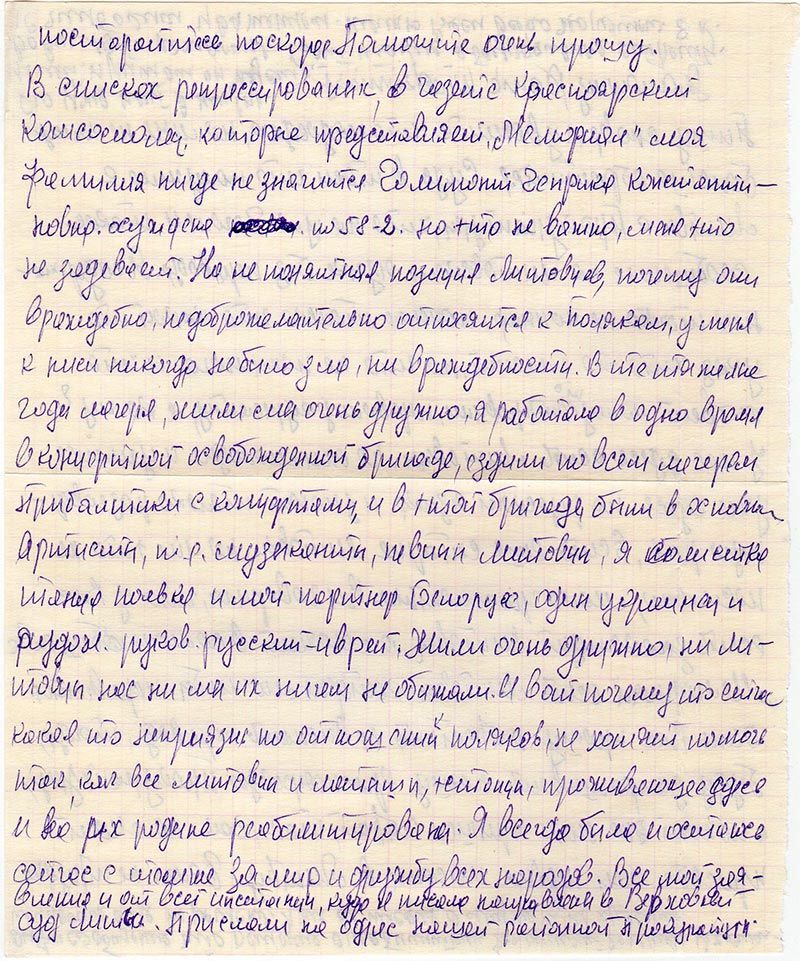 постарайтесь поскорее Помогите очень прошу.
В списках репрессированых, в газете Красноярский
Комсомолец, которые представляет „Мемориал" моя
фамилия нигде не значится Голимонт Генрика Константи-
новна. осуждена по 58-2. но это не важно, меня это
не задевает. Но не понятная позиция Литовцев, почему они
враждебно, недоброжелательно относятся к Полякам, у меня
к ним никогда не было зла, ни враждебности. В те тяжелые
годы лагеря, жили мы очень дружно, я работала в одно время
в концертной освобожденной бригаде, ездили по всем лагерям
Прибалтики с концертами, и в этой бригаде были в основном
Артисты, т.е. музыканты, певцы литовцы, я солистка
полька и мой партнер Белорус, один украинец и
худож. руков. русский-еврей. Жили очень дружно, ни ли-
товцы нас ни мы их ничем не обижали. И вот почему то сейчас
какая то неприязнь по отношений к поляков, не хотят помочь
так, как все литовцы и латыши, эстонцы, проживающее здесь
и на их родине реабилитированы. Я всегда была и остаюсь
сейчас с этим же за мир и дружбу всех народов. Все мои зая-
вления и от всех инстанции, куда я писала направляли в Верховный
суд Литвы. Прислали на адрес нашей районной Прокуратуры.